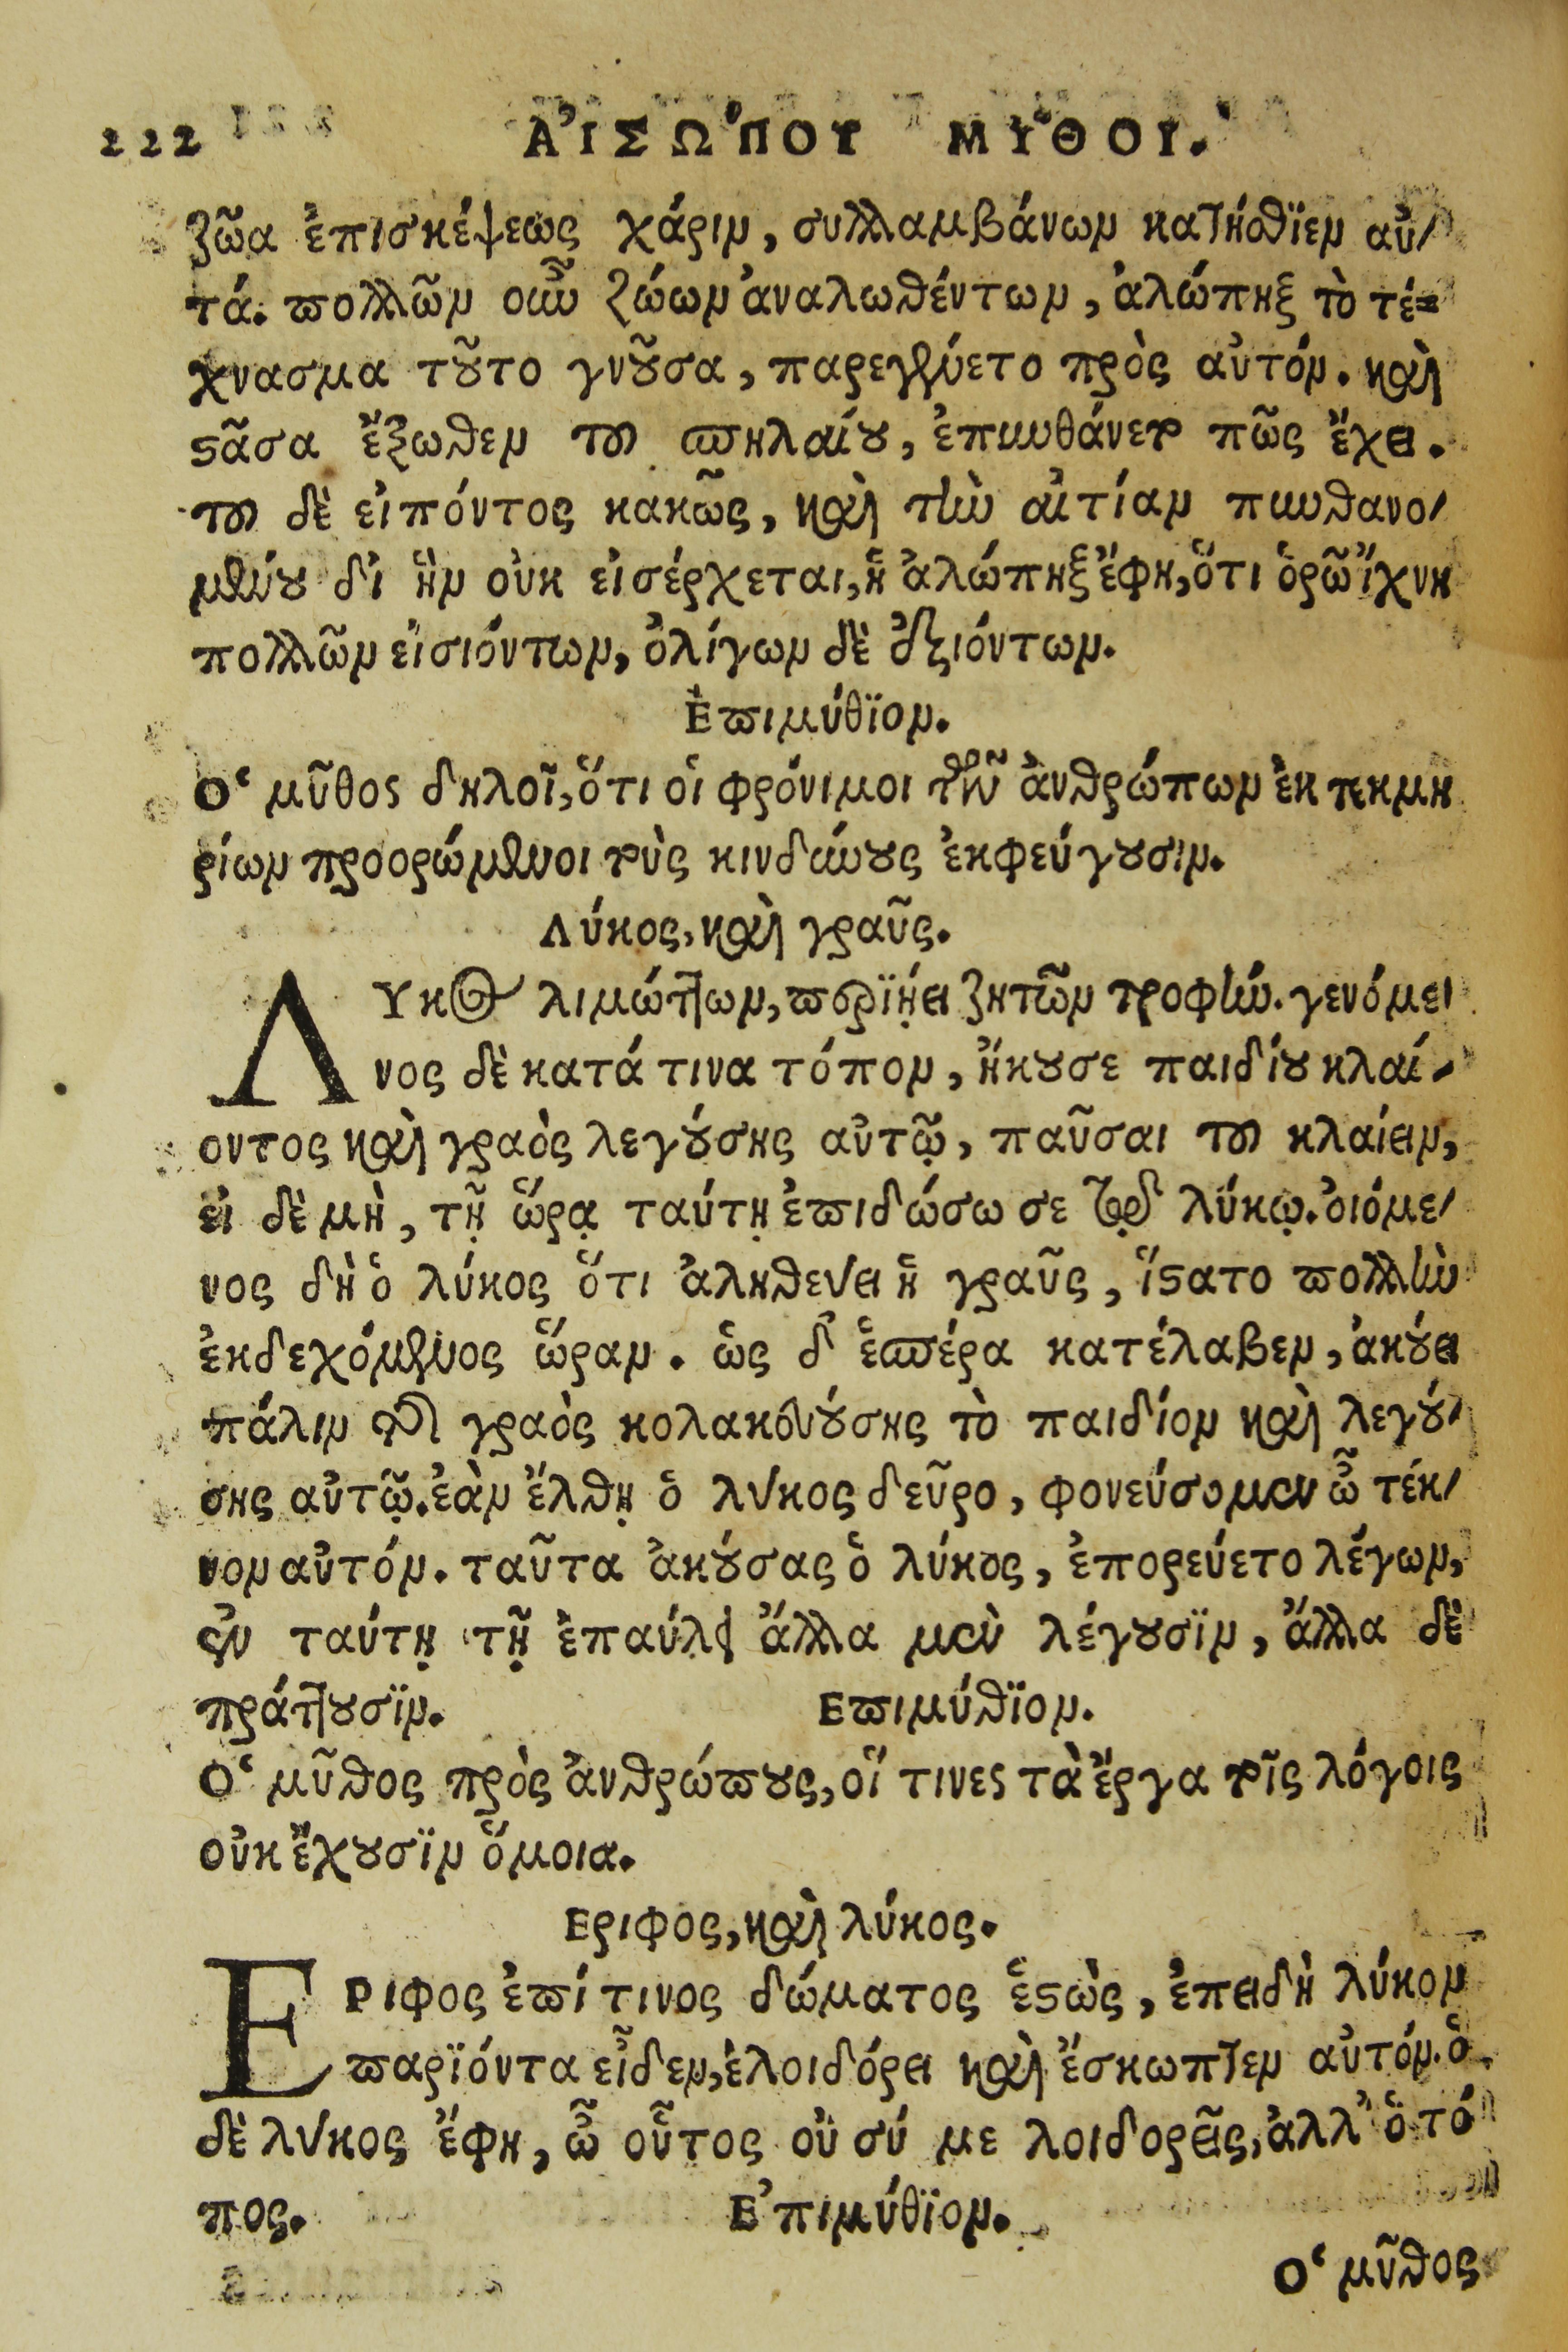 222 ΑἸΣΩΠΟΥ ΜΥΘΟΙ.
ζῶα ἐπισκέψεως χάριν, συλλαμβάνων κατήσθϊεν αὐ-
τά. πολλῶν οὖν ζώων ἀναλωθέντων, ἀλώπηξ τὸ τέ-
χνασμα τοῦτο γνοῦσα, παρεγένετο πρὸς αὐτόν. καὶ
στᾶσα ἔξωθεν τοῦ σπηλαίου, ἐπυνθάνετο πῶς ἔχει.
τοῦ δὲ εἰπόντος κακῶς, καὶ τὴν αἰτίαν πυνθανο-
μένου δι ἣν οὐκ εἰσέρχεται, ἡ ἀλώπηξ ἔφη, ὅτι ὁρῶ ἴχνη
πολλῶν εἰσιόντων, ὀλίγων δὲ ἐξιόντων.
Ἐπιμύθϊον.
Ὁ μῦθος δηλοῖ, ὅτι οἱ φρόνιμοι τῶν ἀνθρώπων ἐκ τεκμη
ρίων προορώμενοι τοὺς κινδύνους ἐκφεύγουσιν.
Λύκος, καὶ γραῦς.
ΛΥκος λιμώττων, περϊῄει ζητῶν τροφήν. γενόμε-
νος δὲ κατά τινα τόπον, ἤκουσε παιδίου κλαί-
οντος καὶ γραὸς λεγούσης αὐτῷ, παῦσαι τοῦ κλαίειν,
εἰ δὲ μὴ, τῇ ὥρᾳ ταύτῃ ἐπιδώσω σε τῷ λύκῳ. οἰόμε-
νος δὴ ὁ λύκος ὅτι ἀληθεύει ἡ γραῦς, ἵστατο πολλὴν
ἐκδεχόμενος ὥραν. ὡς δ' ἑσπέρα κατέλαβεν, ἀκούει
πάλιν τῆς γραὸς κολακευούσης τὸ παιδίον καὶ λεγού-
σης αὐτῷ. ἐὰν ἔλθῃ ὁ λύκος δεῦρο, φονεύσομεν ὦ τέκ-
νον αὐτόν. ταῦτα ἀκούσας ὁ λύκος, ἐπορεύετο λέγων,
ἐν ταύτῃ τῇ ἐπαύλει ἄλλα μὲν λέγουσϊν, ἄλλα δὲ
πράττουσϊν. Επιμύθϊον.
Ὁ μῦθος πρὸς ἀνθρώπους, οἵ τινες τὰ ἔργα τοῖς λόγοις
οὐκ ἔχουσϊν ὅμοια.
Εριφος, καὶ λύκος.
ΕΡιφος ἐπί τινος δώματος ἑστὼς, ἐπειδὴ λύκον
παρϊόντα εἶδεν, ἐλοιδόρει καὶ ἔσκωπτεν αὐτόν. ὁ
δὲ λύκος ἔφη, ὦ οὗτος οὐ σύ με λοιδορεῖς, ἀλλ' ὁ τό
πος. Ἐπιμύθϊον.
Ὁ μῦθος